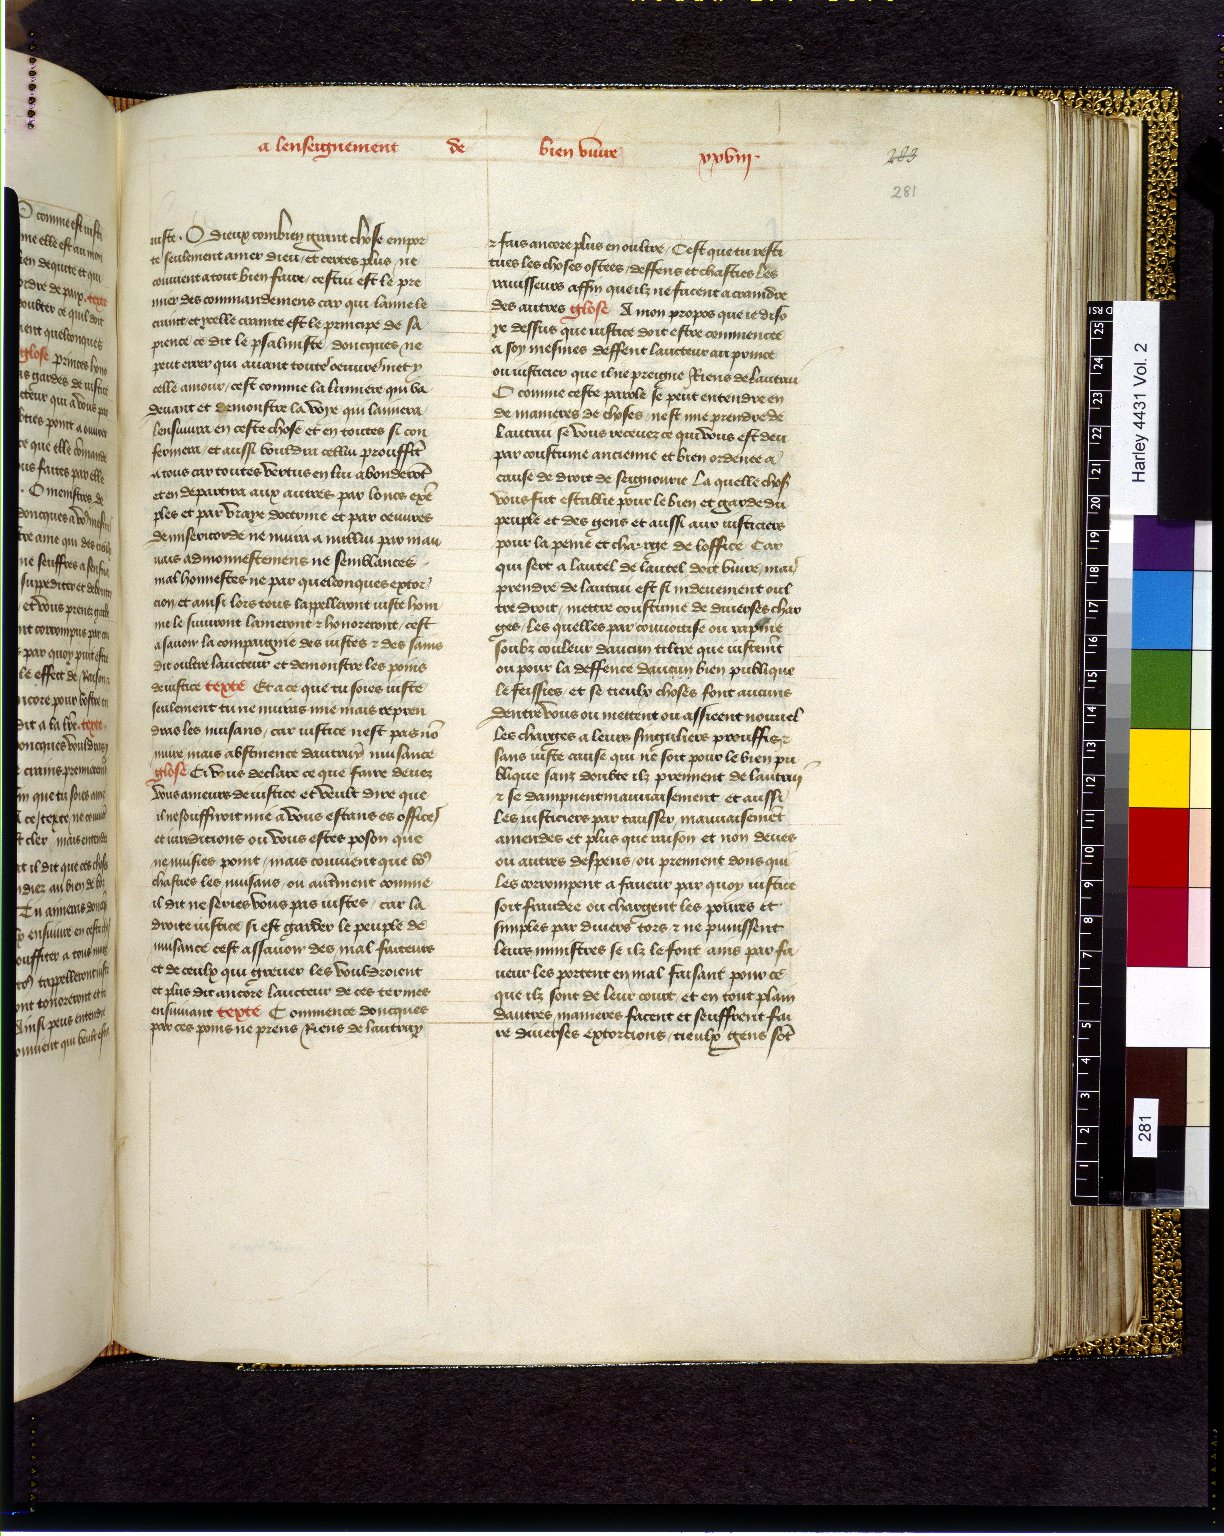 a lenseignement de bien viure xxviii.
283
281
iuste. O dieux combien grant chose empor
te seulement amer dieu / et certes plus ne
conuient a tout bien faire / cestui est le pre
mier des commandemens car qui laime le
craint et ycelle crainte est le principe de sa
pience ce dit le psalmiste doncques ne
peut errer qui auant toute oeuure met y
celle amour / cest comme la lumiere qui va
deuant et demonstre la voye qui lamera
lensuiura en ceste chose et en toutes si con
fermera / et aussi vouldra cellui prouffit
a tous car toutes vertus en lui abonderōt
et en departira aux autres par bons exē
ples et par vraye doctrine et par oeuures
de misericorde ne nuira a nullui par mau
uais admonnestemens ne semblances
mal honnestes ne par quelconques extor
cion / et ainsi lors tous lappelleront iuste hom
me le suiuront lameront ⁊ honoreront / cest
a sauoir la compaignie des iustes ⁊ des sains
dit oultre laucteur et demonstre les poins
de iustice texte Et a ce que tu soies iuste
seulement tu ne nuiras mie mais repren
dras les nuisans / car iustice nest pas nō
nuire mais abstinence dautruy nuisance
glose Ci vous declare ce que faire deuez
vous ameurs de iustice et veult dire que
il ne souffiroit mie a vous estans es offices
et iuridicions ou vous estes poson que
ne nuisies point / mais conuient que vos
chasties les nuisans / ou autrement comme
il dit ne series vous pas iustes / car la
droite iustice si est garder le peuple de
nuisance cest assauoir des mal faiteurs
et de ceulx qui greuer les vouldroient
et plus dit ancore laucteur de ces termes
ensuiuant texte Commence doncques
par ces poins ne prens Riens de lautruy
⁊ fais ancore plus en oultre / Cest que tu resti
tues les choses ostees / deffens et chasties les
rauisseurs affin que ilz ne facent a craindre
des autres glose A mon propos que ie diso
ye dessus que iustice doit estre commencee
a soy mesmes deffent laucteur au prince
ou iusticier que il ne preigne Riens de lautrui
O comme ceste parole se peut entendre en
de manieres de choses / nest mie prendre de
lautrui se vous receuez ce qui vous est deu
par coustume ancienne et bien ordenee a
cause de droit de seignourie La quelle chose
vous fut establie pour le bien et garde du
peuple et des gens et aussi aux iusticiers
pour la peine et charge de loffice Car
qui sert a lautel de lautel doit viure / mais
prendre de lautrui est si indeuement oul
tre droit / mettre coustume de diuerses char
ges / les quelles par couuoitise ou rapine
soubz couleur daucun tiltre que iustemt
ou pour la deffence daucun bien publique
le feissies / et se tieulx choses sont aucuns
dentre vous ou mettent ou assieent nouuel
les charges a leurs singuliers prouffis ⁊
sans iuste cause qui ne soit pour le bien pu
blique sanz doubte ilz prennent de lautrui
⁊ se dampnent mauuaisement et aussi
les iusticiers par tausser mauuaisemēt
amendes et plus que raison et non deues
ou autres despens / ou prennent dons qui
les corrompent a faueur par quoy iustice
soit fraudee ou chargent les poures et
simples par diuers tors ⁊ ne punissent
leurs ministres se ilz le font ains par fa
ueur les portent en mal faisant pour ce
que ilz sont de leur court et en tout plain
dautres manieres facent et seuffrent fai
re diuerses extorcions / tieulx gens sōt
Harley 4431 Vol. 2
281